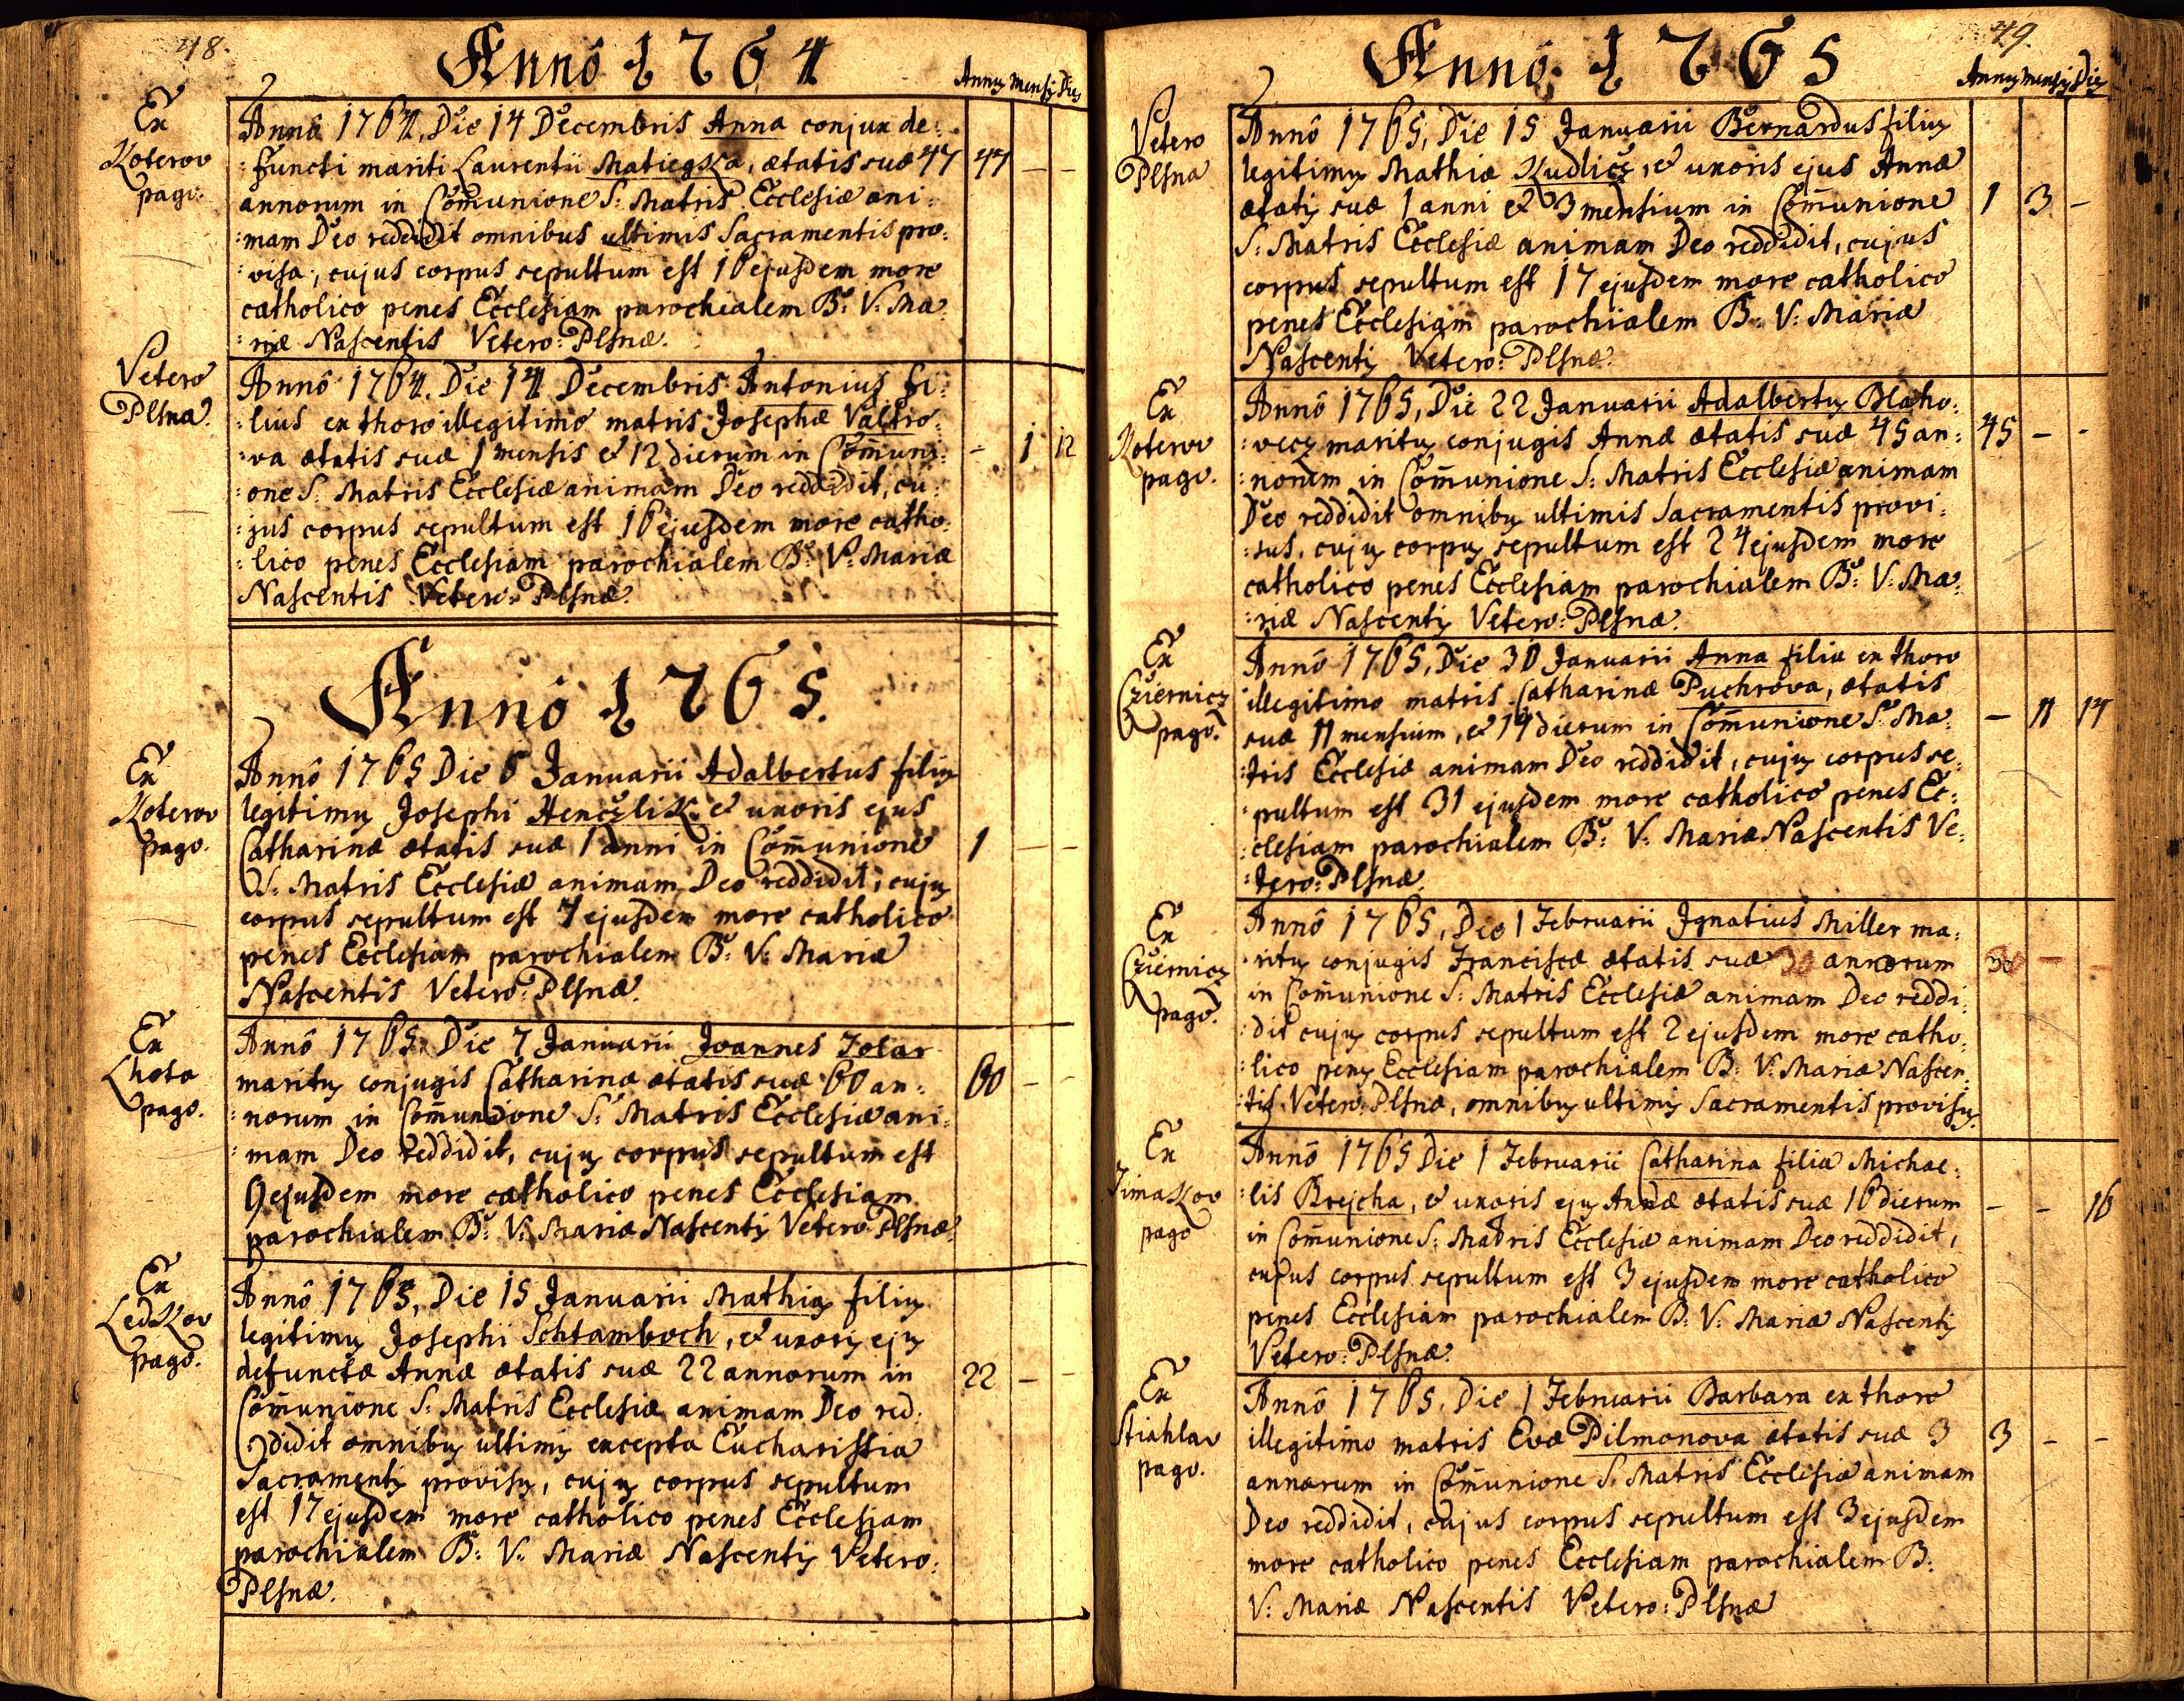 48.
Annô 1764
Annus Mensis Dies
Ex
Koterov
pago.
Annô 1764, Die 14 Decembris Anna conjux de:
:functi mariti Laurentii Matiegka, ætatis suæ 47
47 — —
annorum in Com̄unione S: Matris Ecclesiæ ani:
:mam Deo reddidit omnibus ultimis Sacramentis pro:
:visa, cujus corpus sepultum est 16 ejusdem more
catholico penes Ecclesiam parochialem B: V: Ma:
:riæ Nascentis Vetero: Plsnæ.
Vetero
Plsna.
Annô 1764. Die 14 Decembris Antonius fi:
:lius ex thoro illegitimo matris Josephæ Valtro:
:va ætatis suæ 1 mensis et 12 dierum in Com̄uni:
- 1 12
:one S: Matris Ecclesiæ animam Deo reddidit, cu:
:jus corpus sepultum est 16 ejusdem more catho:
:lico penes Ecclesiam parochialem B: V: Mariæ
Nascentis Vetero: Plsnæ.
Annô 1765.
Ex
Koterov
pago.
Annô 1765 Die 6 Januarii Adalbertus filius
legitimus Josephi Henczlik et uxoris ejus
Catharinæ ætatis suæ 1 anni in Com̄unione
1 — —
S: Matris Ecclesiæ animam Deo reddidit, cujus
corpus sepultum est 7 ejusdem more catholico
penes Ecclesiam parochialem B: V: Mariæ
Nascentis Vetero: Plsnæ.
Ex
Lhota
pago.
Annô 1765. Die 7 Januarii Joannes Tolar
maritus conjugis Catharinæ ætatis suæ 60 an:
60 — —
:norum in Com̄unione S: Matris Ecclesiæ ani:
:mam Deo reddidit, cujus corpus sepultum est
9 ejusdem more catholico penes Ecclesiam
parochialem B: V: Mariæ Nascentis Vetero Plsnæ.
Ex
Ledkov
pago.
Annô 1765, Die 15 Januarii Mathias filius
legitimus Josephi Schtamboch, et uxoris ejus
defunctæ Annæ ætatis suæ 22 annorum in
22 — —
Com̄unione S: Matris Ecclesiæ animam Deo red:
:didit omnibus ultimis excepta Eucharistia
Sacramentis provisus, cujus corpus sepultum
est 17 ejusdem more catholico penes Ecclesiam
parochialem B: V: Mariæ Nascentis Vetero:
Plsnæ.
49.
Annô: 1765
Annus Mensis Dies
Vetero
Plsna
Annô 1765, Die 15 Januarii Bernardus filius
legitimus Mathiæ Kudlicz, et uxoris ejus Annæ
ætatis suæ 1 anni et 3 mensium in Com̄unione
1 3 -
S: Matris Ecclesiæ animam Deo reddidit, cujus
corpus sepultum est 17 ejusdem more catholico
penes Ecclesiam parochialem B: V: Mariæ
Nascentis Vetero: Plsnæ.
Ex
Koterov
pago.
Annô 1765, Die 22 Januarii Adalbertus Blaho:
:vecz maritus conjugis Annæ ætatis suæ 45 an:
45 — -
:norum in Com̄unione S: Matris Ecclesiæ animam
Deo reddidit omnibus ultimis Sacramentis provi:
:sus, cujus corpus sepultum est 24 ejusdem more
catholico penes Ecclesiam parochialem B: V: Ma:
:riæ Nascentis Vetero: Plsnæ.
Ex
Cziernicz
pago.
Annô 1765, Die 30 Januarii Anna filia ex thoro
illegitimo matris Catharinæ Puchrova, ætatis
suæ 11 mensium, et 14 dierum in Com̄unione S: Ma:
— 11 14
:tris Ecclesiæ animam Deo reddidit, cujus corpus se:
:pultum est 31 ejusdem more catholico penes Ec:
:clesiam parochialem B: V: Mariæ Nascentis Ve:
:tero: Plsnæ.
Ex
Cziernicz
pago.
Annô 1765, Die 1 Februarii Ignatius Miller ma:
:ritus conjugis Franciscæ ætatis suæ 30 annorum
30 — -
in Com̄unione S: Matris Ecclesiæ animam Deo reddi:
:dit cujus corpus sepultum est 2 ejusdem more catho:
:lico penes Ecclesiam parochialem B: V: Mariæ Nascen:
:tis Vetero: Plsnæ, omnibus ultimis Sacramentis provisus.
Ex
Timakov
pago
Annô 1765 Die 1 Februarii Catharina filia Michae:
:lis Brejcha, et uxoris ejus Annæ ætatis suæ 16 dierum
— — 16
in Com̄unione S: Matris Ecclesiæ animam Deo reddidit,
cujus corpus sepultum est 3 ejusdem more catholico
penes Ecclesiam parochialem B: V: Mariæ Nascentis
Vetero: Plsnæ.
Ex
Stiahlav
pago.
Annô 1765. Die 1 Februarii Barbara ex thoro
illegitimo matris Evæ Pilmonova ætatis suæ 3
3 — —
annorum in Com̄unione S: Matris Ecclesiæ animam
Deo reddidit, cujus corpus sepultum est 3 ejusdem
more catholico penes Ecclesiam parochialem B:
V: Mariæ Nascentis Vetero: Plsnæ